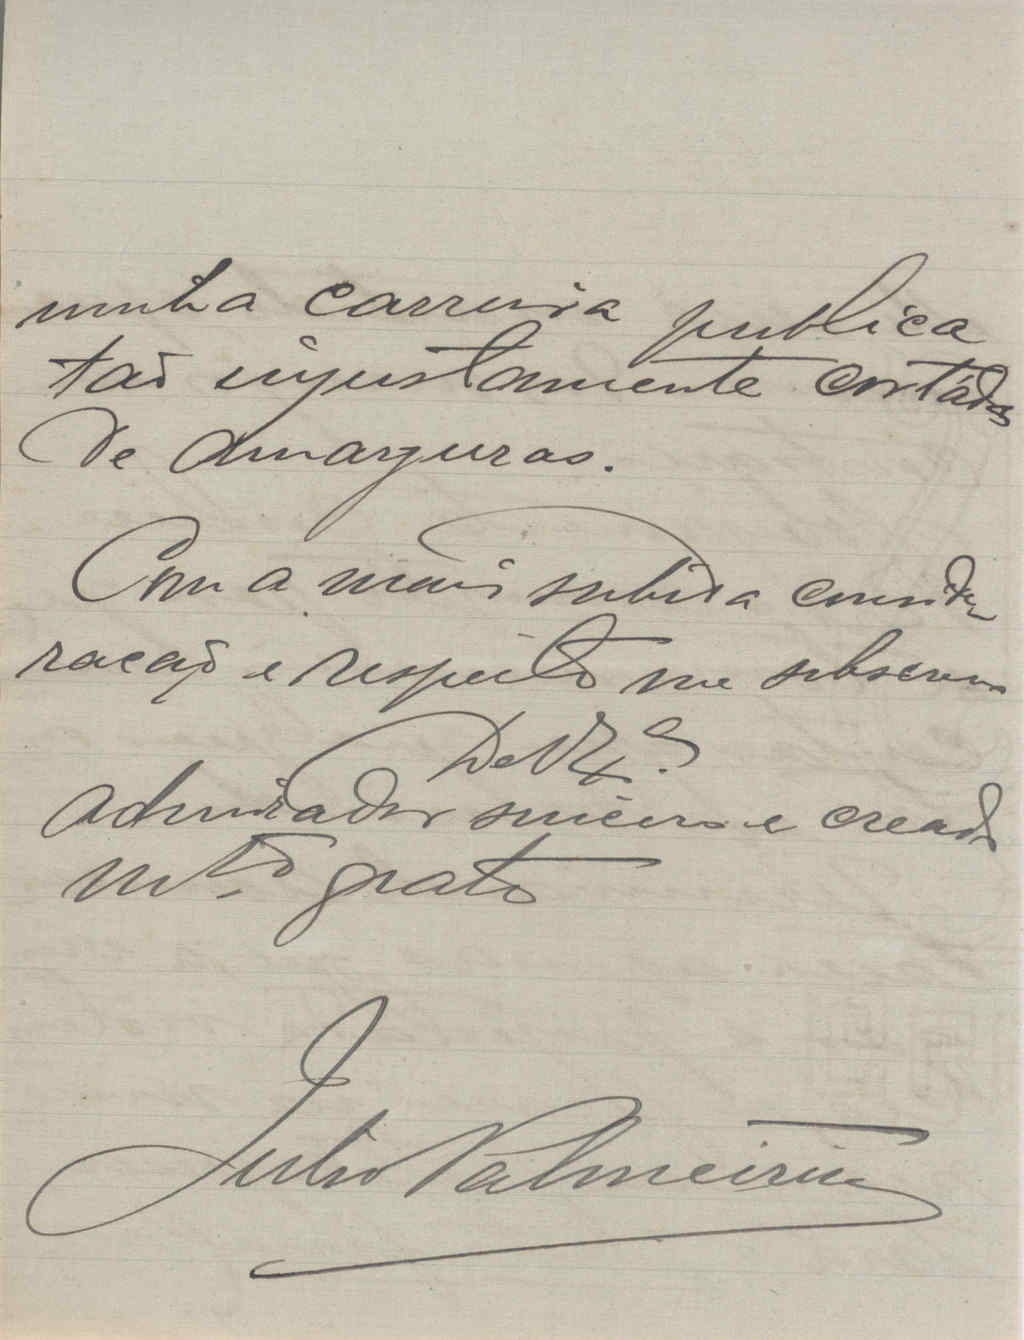 minha carreira publica
tão injustamente cortada
de amarguras.
Com a mais subida conside
ração e respeito me subscrevo
De V. Exª
admirador sincero e creado
mtº grato
Julio Palmeirim